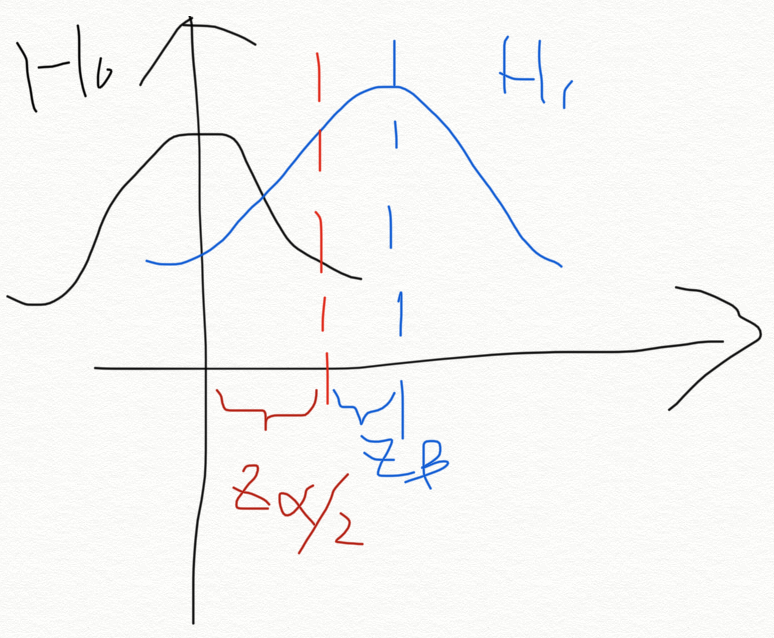 H₀
H₁
Zβ
Zα/2